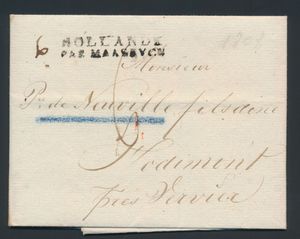 HOLLANDE
PAR MAASEYCK
Monsieur
de Neuville fils
Hodimont
près Verviers